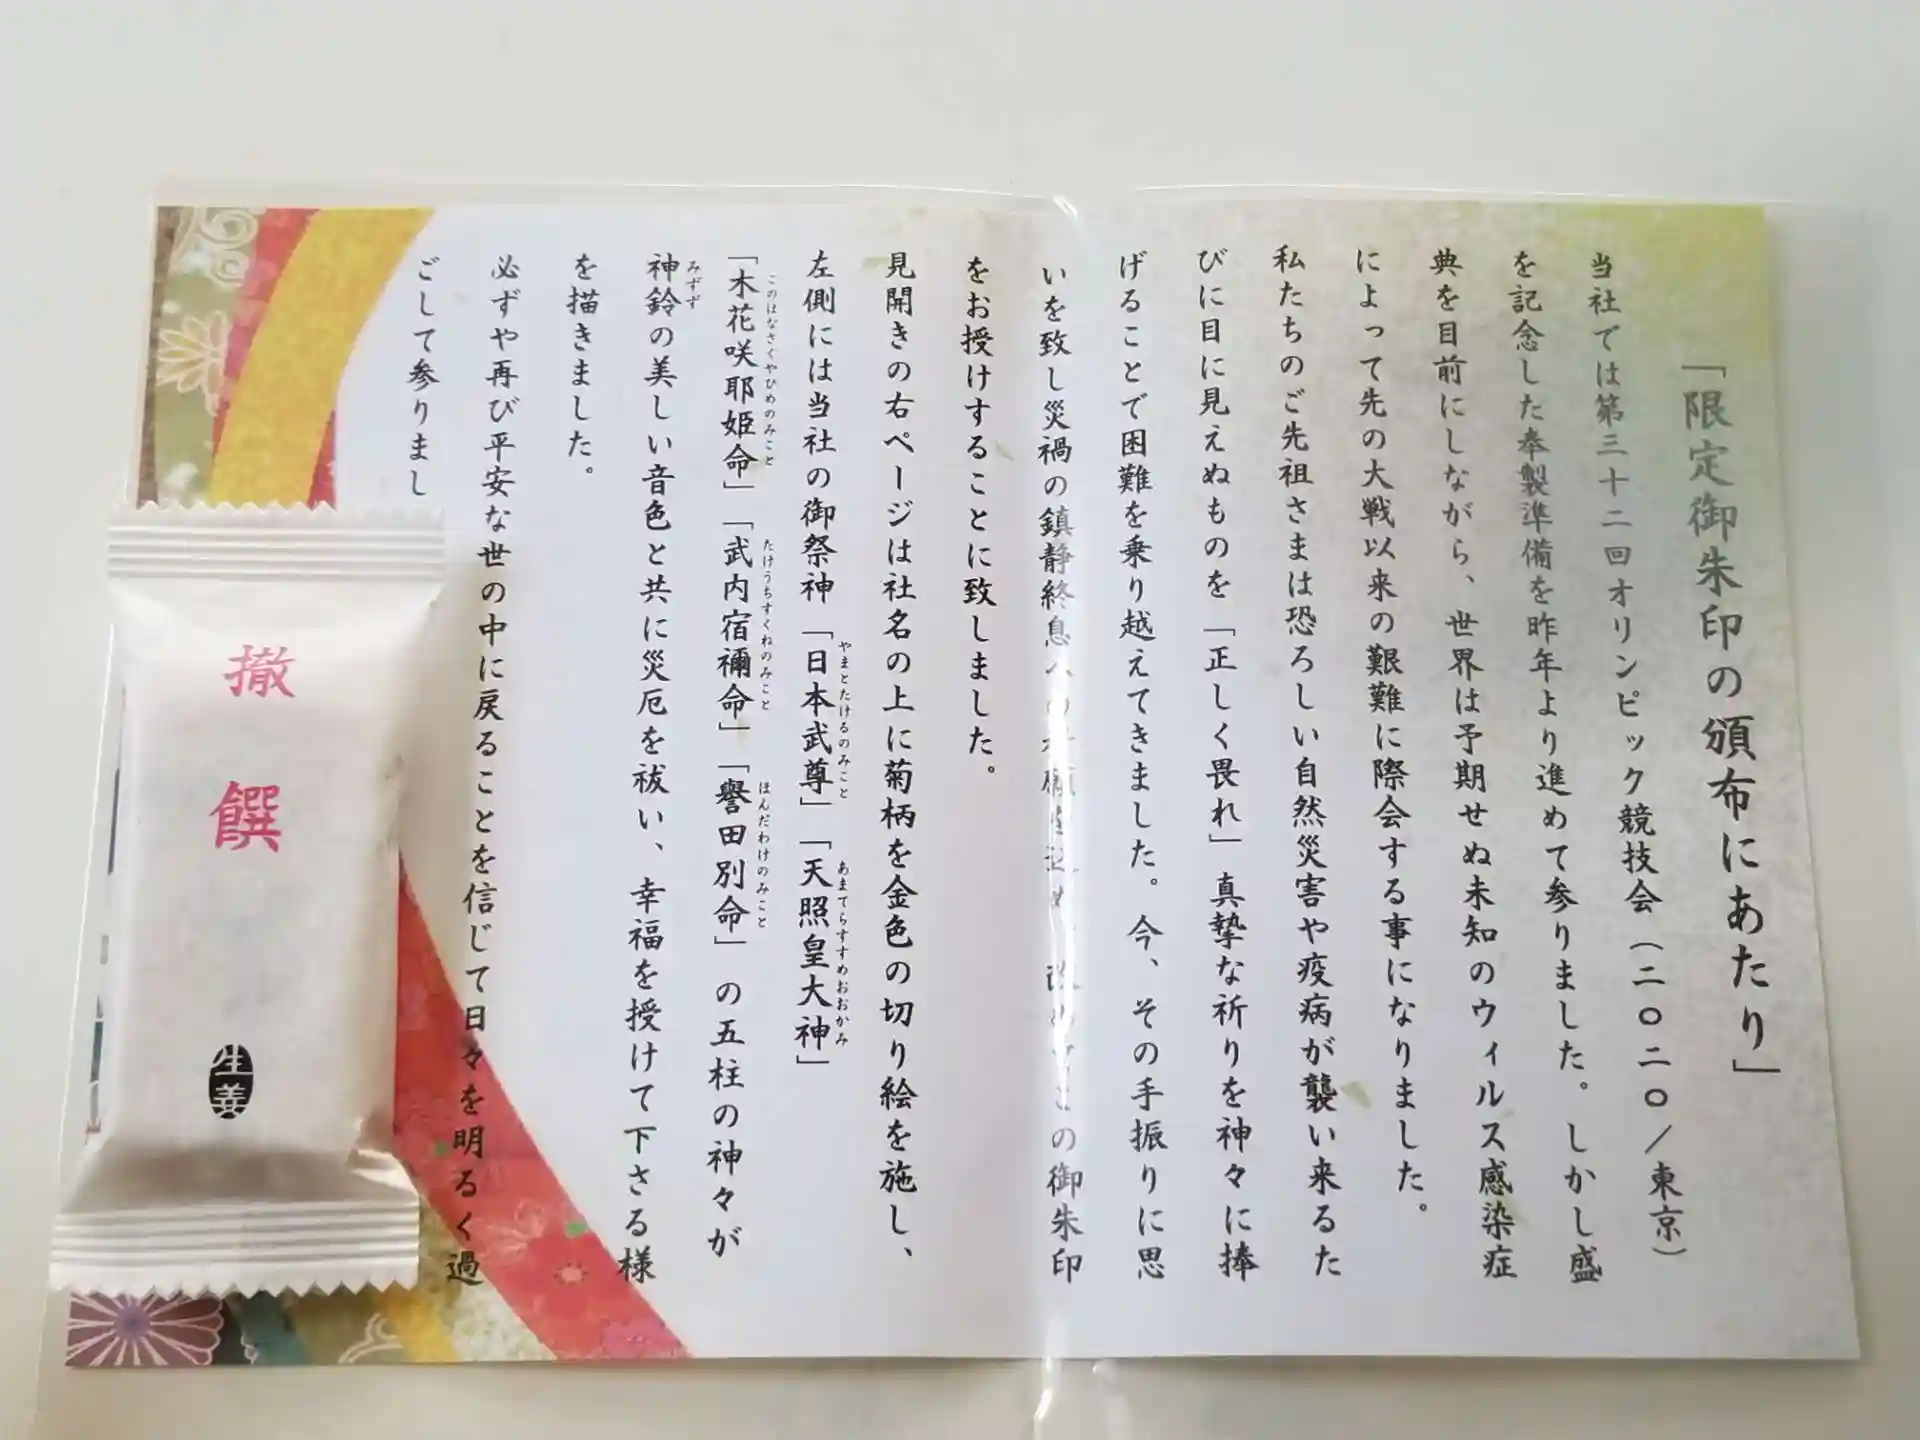 「限定御朱印の頒布にあたり」
当社では第三十二回オリンピック競技会(二〇二〇/東京)
を記念した奉製準備を昨年より進めて参りました。しかし盛
典を目前にしながら、世界は予期せぬ未知のウィルス感染症
によって先の大戦以来の艱難に際会する事になりました。
私たちのご先祖さまは恐ろしい自然災害や疫病が襲い来るた
びに目に見えぬものを「正しく畏れ」真摯な祈りを神々に捧
げることで困難を乗り越えてきました。今、その手振りに思
いを致し災禍の鎮静終息への
の御朱印
をお授けすることに致しました。
見開きの右ページは社名の上に菊柄を金色の切り絵を施し、
左側には当社の御祭神「日本武尊」「天照皇大神」
やまとたけるのみこと
あまてらすすめおおかみ
「木花咲耶姫命」「武内宿禰命」「譽田別命」の五柱の神々が
このはなさくやひめのみこと
たけうちすくねのみこと
ほんだわけのみこと
神鈴の美しい音色と共に災厄を祓い、幸福を授けて下さる様
みすず
を描きました。
必ずや再び平安な世の中に戻ることを信じて日々を明るく過
ごして参りまし
撤饌
生姜